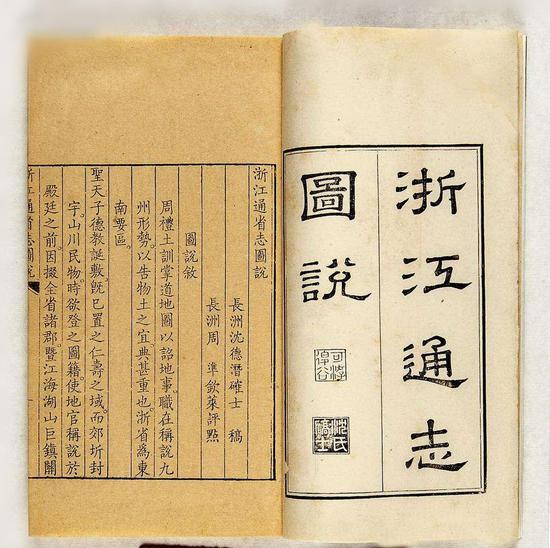 浙江通志
圖說
沈氏
浙江通省志圖說
長洲沈德潛確士 稿
長洲周 準欽萊評點
圖說敘
周禮土訓掌道地圖以詔地事職在稱說九
州形勢以告物土之宜典甚重也浙省爲東
南要區
聖天子德教誕敷旣已置之仁壽之域而郊圻封
守山川民物時欲登之圖籍使地官稱說於
殿廷之前因掇全省諸郡暨江海湖山巨鎮關
浙江通省志圖說
一